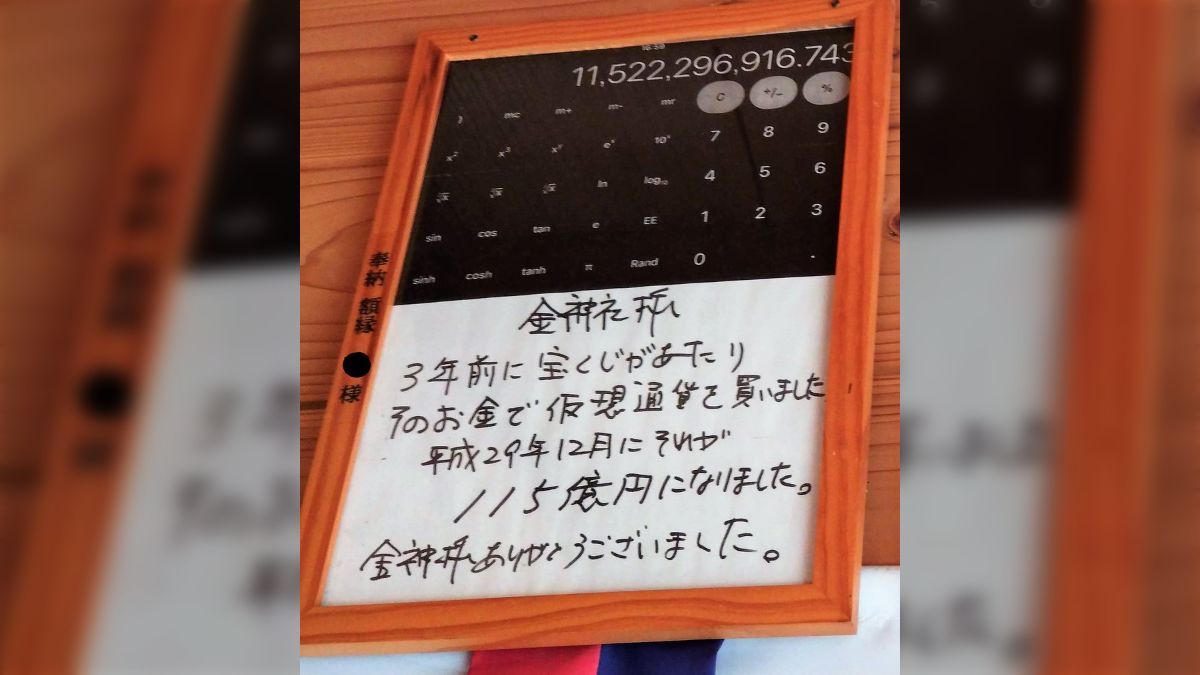 16:59
11,522,296,916.743
) mc m+ m- mr C +/- %
x² x³ xʸ eˣ 10ˣ 7 8 9
ln log₁₀ 4 5 6
sin cos tan e EE 1 2 3
sinh cosh tanh π Rand 0 .
奉納 額縁 様
金神社様
3年前に宝くじがあたり
そのお金で仮想通貨を買いました
平成29年12月にそれが
115億円になりました。
金神様ありがとうございました。